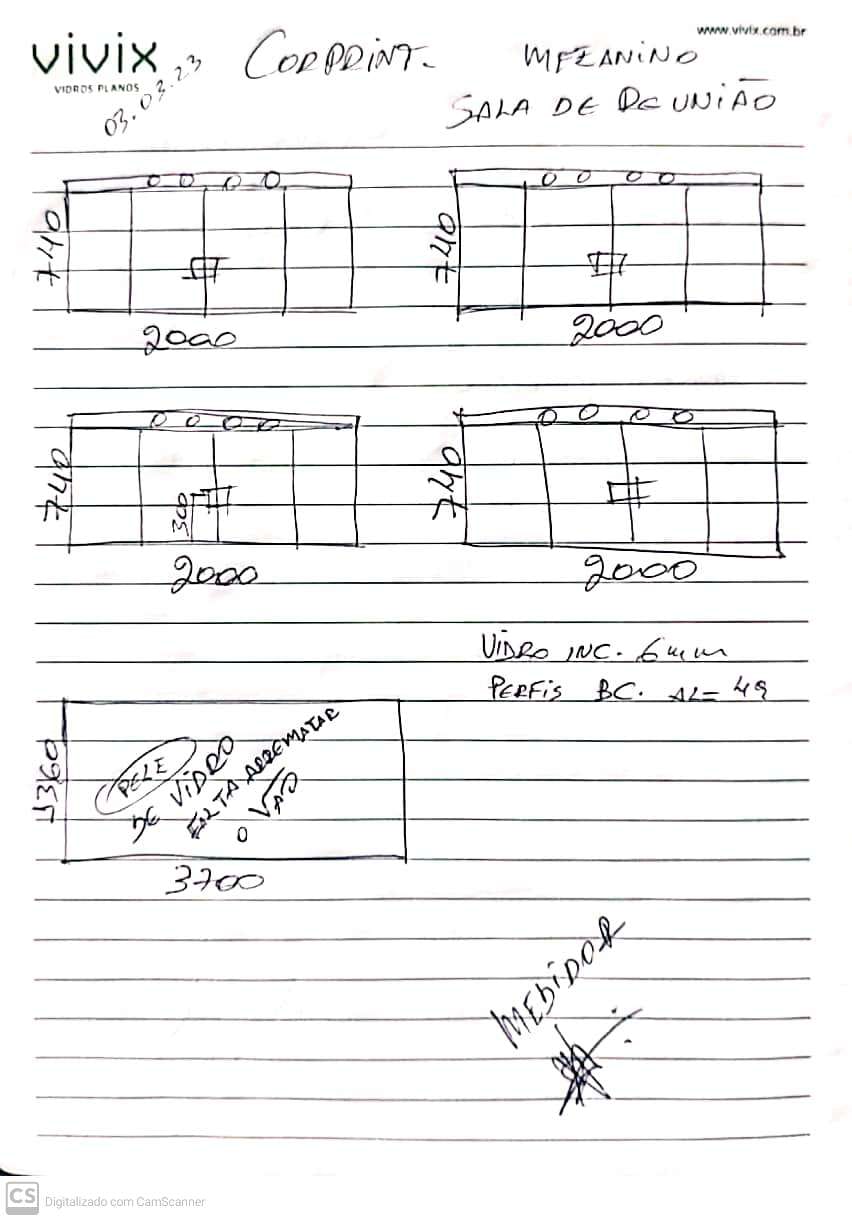 www.vivix.com.br
vivix
VIDROS PLANOS
03.03.23
CORPRINT.
MEZANINO
SALA DE REUNIÃO
740
2000
740
2000
740
300
2000
740
2000
VIDRO INC. 6mm
PERFIS BC. AL=
PELE
DE VIDRO
FALTA ARREMATAR
O VÃO
3700
MEDIDOR
CS Digitalizado com CamScanner